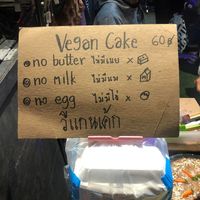 Vegan Cake 60฿
no butter ไม่มีเนย x
no milk ไม่มีนม x
no egg ไม่มีไข่ x
วีแกนเค้ก